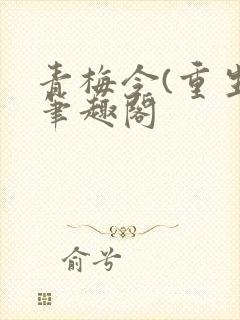 青梅令(重生
笔趣阁
俞兮